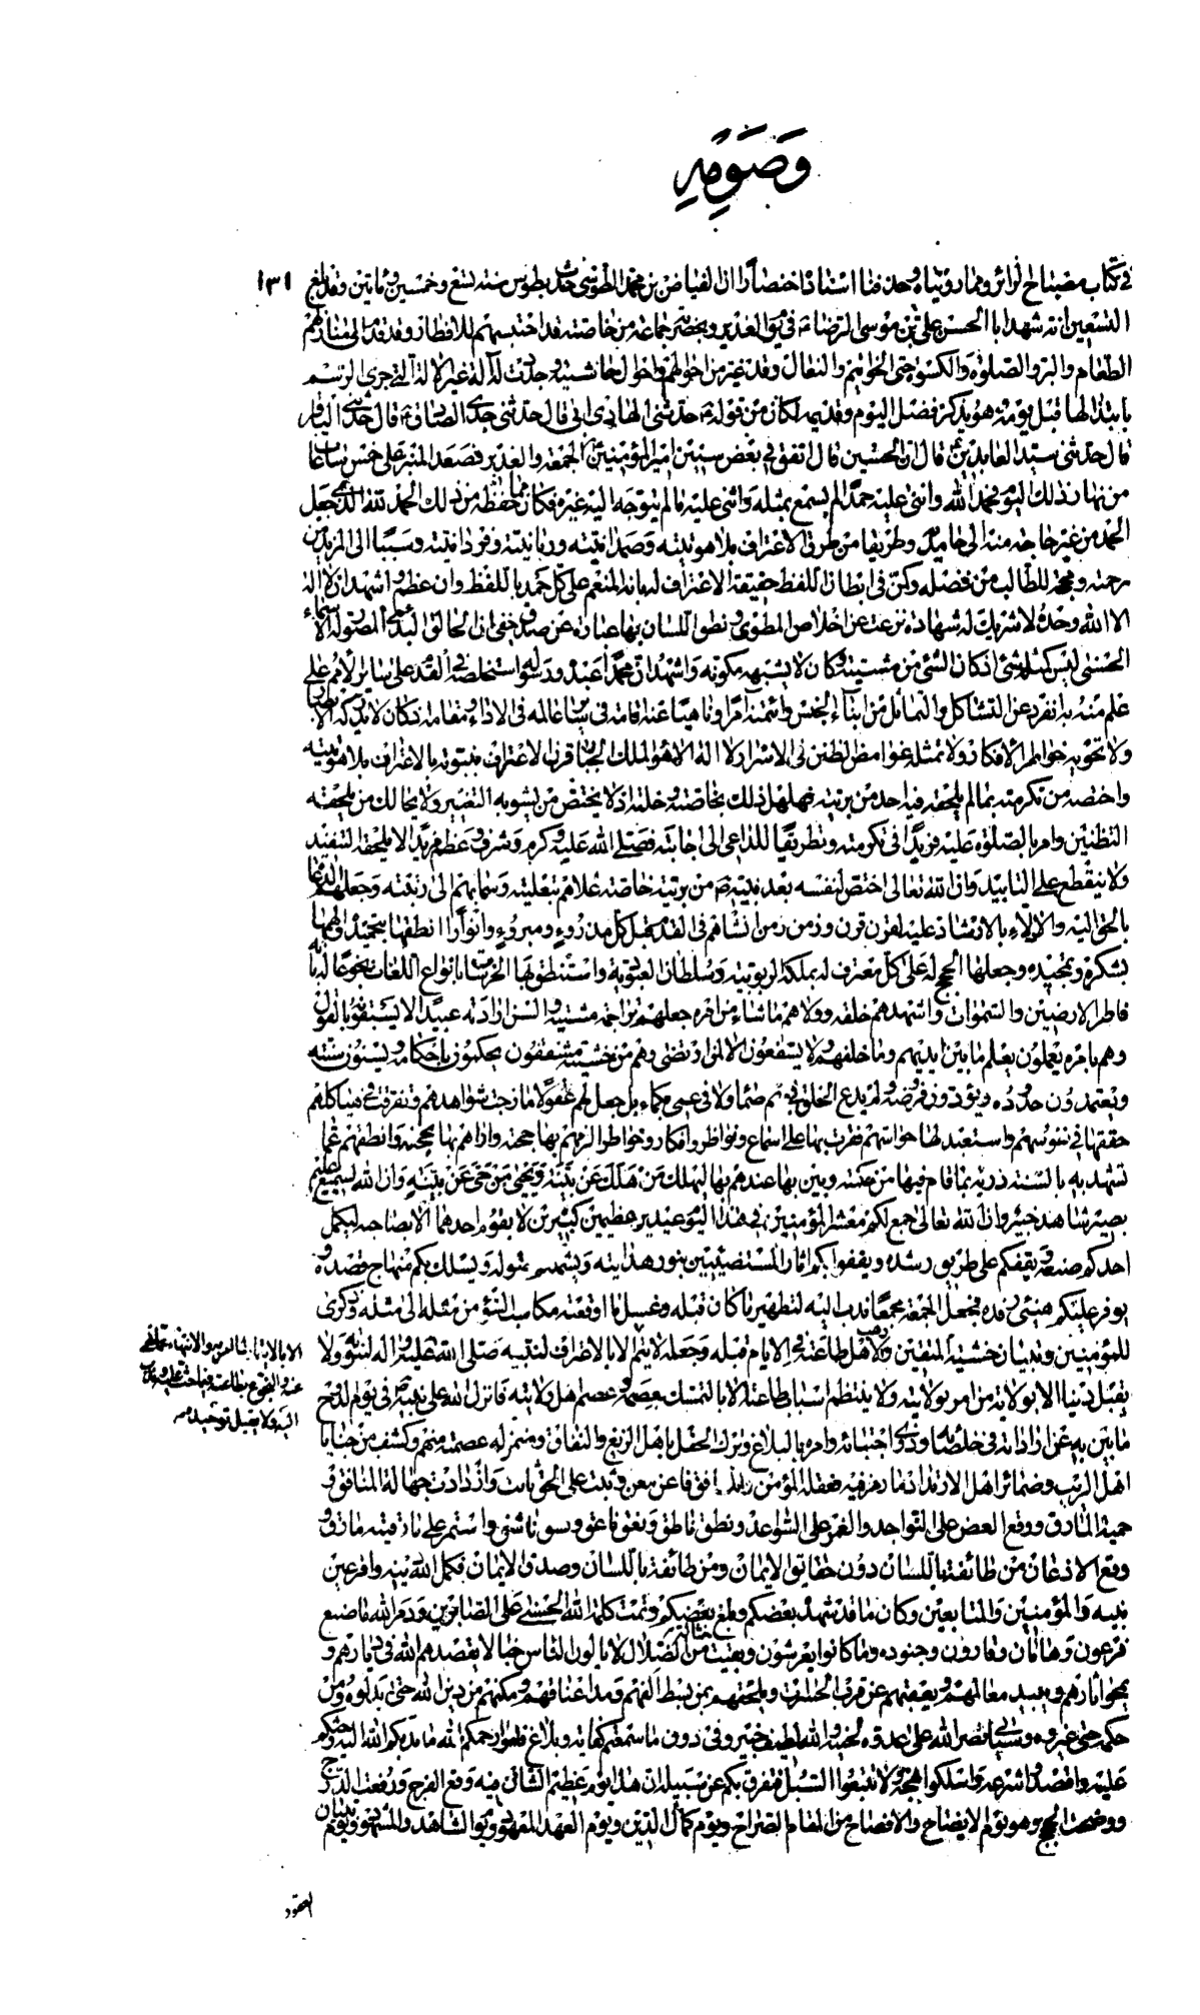 وَصَوْمِهِ
١٣١
في كتاب مصباح الزائر ومما رويناه وحذفنا اسناده اختصاراً ان الفياض بن محمد الطوسي حدث بطوس سنة تسع وخمسين ومأتين وقد بلغ
التسعين انه شهد ابا الحسن علي بن موسى الرضا ع في يوم الغدير وبحضرته جماعة من خاصته قد احتبسهم للافطار وقد قدم الى منازلهم
الطعام والبر والصلوة والكسوة حتى الخواتيم والنعال وقد غير من احوالهم واحوال حاشيته وجددت له آلة غير الالة التي جرى الرسم
بابتذالها قبل يومه وهو يذكر فضل اليوم وقديمه فكان من قوله ع حدثني الهادي ابي قال حدثني جدي الصادق ع قال حدثني الباقر
قال حدثني سيد العابدين ع قال ان الحسين قال اتفق في بعض سنين امير المؤمنين الجمعة والغدير فصعد المنبر على خمس ساعات
من نهار ذلك اليوم فحمد الله واثنى عليه حمداً لم يسمع بمثله واثنى عليه بما لم يتوجه اليه غيره فكان مما حفظ من ذلك الحمد لله الذي جعل
الحمد من غير حاجة منه الى حامديه وطريقا من طرق الاعتراف بلاهوتيته وصمدانيته وربانيته وفردانيته وسببا الى المزيد من
رحمته ومحجة للطالب من فضله وكمن في ابطان اللفظ حقيقة الاعتراف له بانه المنعم على كل حمد باللفظ وان عظم واشهد ان لا اله
الا الله وحده لا شريك له شهادة نزعت عن اخلاص المطوى ونطق اللسان بها عبارة عن صدق خفي انه الخالق البدئ المصور له الاسماء
الحسنى ليس كمثله شئ اذ كان الشئ من مشيته وكان لا يشبهه مكونه واشهد ان محمداً عبده ورسوله استخلصه في القدم على سائر الامم على
علم منه بانه انفرد عن التشاكل والتماثل من ابناء الجنس وائتمنه آمراً وناهياً عنه اقامه في سائر عالمه في الاداء ومقامه اذ كان لا يدركه الابصار
ولا تحويه خواطر الافكار ولا تمثله غوامض الظنن في الاسرار لا اله الا هو الملك الجبار قرن الاعتراف بنبوته بالاعتراف بلاهوتيته
واختصه من تكرمته بما لم يلحقه فيه احد من بريته فهلهل ذلك بخاصته وخلته اذ لا يختص من يشوبه التغيير ولا يخالل من يلحقه
التظنين وامر بالصلوة عليه مزيدا في تكرمته وتطريقا للداعي الى اجابته فصلى الله عليه وكرم وشرف وعظم مزيداً لا يلحقه التنفيد
ولا ينقطع على التابيد وان الله تعالى اختص لنفسه بعد نبيه ص من بريته خاصة علاهم بتعليته وسما بهم الى رتبته وجعلهم الدعاة
بالحق اليه والادلاء بالارشاد عليه لقرن قرن وزمن زمن انشاهم في القدم قبل كل مدروء ومبروء وانواراً انطقها بتحميده والهمها
بشكره وتمجيده وجعلها الحجج له على كل معترف له بملكة الربوبية وسلطان العبودية واستنطق بها الخرسات بانواع اللغات بخوعا له بانه
فاطر الارضين والسموات واشهدهم خلقه وولاهم ما شاء من امره جعلهم تراجمة مشيته والسن ارادته عبيداً لا يسبقونه بالقول
وهم بامره يعملون يعلم ما بين ايديهم وما خلفهم ولا يشفعون الا لمن ارتضى وهم من خشيته مشفقون يحكمون باحكامه ويستنون بسنته
ويعتمدون حدوده ويؤدون فروضه ولم يدع الخلق في بهم صما ولا في عمى بكماء بل جعل لهم عقولا مازجت شواهدهم وتفرقت في هياكلهم
حققها في نفوسهم واستعبد لها حواسهم فقرت بها على اسماع ونواظر وافكار وخواطر الزمهم بها حجته واراهم بها محجته وانطقهم عما
تشهد به بالسنة ذربة بما قام فيها من حكمته وبين بها عندهم بها ليهلك من هلك عن بينة ويحيى من حي عن بينة وان الله لسميع عليم
بصير شاهد خبير وان الله تعالى جمع لكم معشر المؤمنين في هذا اليوم عيدين عظيمين كبيرين لا يقوم احدهما الا بصاحبه ليكمل
احدكم صنعه ويقفكم على طريق رشده ويقفوا بكم اثار المستضيئين بنور هدايته ويشملكم بصوله ويسلك بكم منهاج قصده و
يوفر عليكم هنئ رفده فجعل الجمعة مجمعا ندب اليه لتطهير ما كان قبله وغسل ما اوقعته مكاسب السوء من مثله الى مثله وذكرى
للمؤمنين وتبيان خشية المتقين ووهب لاهل طاعته في الايام قبله وجعله لا يتم الا بالاعتراف لنبيه صلى الله عليه واله بنبوته ولا
يقبل دينا الا بولاية من امر بولايته ولا ينتظم اسباب طاعته الا بالتمسك بعصمه وعصم اهل ولايته فانزل الله على نبيه ص في يوم الدوح
ما بين به عن ارادته في خلصائه وذوي اجتبائه وامره بالبلاغ وترك الحفل باهل الزيغ والنفاق وضمن له عصمته منهم وكشف من خبايا
اهل الريب وضمائر اهل الارتداد ما رمز فيه فعقله المؤمن والمنافق فاعن معن وثبت على الحق ثابت وازدادت جهالة المنافق و
حمية المارق ووقع العض على النواجد والغمز على السواعد ونطق ناطق ونعق ناعق ونشق ناشق واستمر على مارقيته مارق و
وقع الاذعان من طائفة باللسان دون حقايق الايمان ومن طائفة باللسان وصدق الايمان فكمل الله دينه واقر عين
نبيه والمؤمنين والمتابعين وكان ما قد شهد بعضكم وبلغ بعضكم وتمت كلمة الله الحسنى على الصابرين ودمر الله ما صنع
فرعون وهامان وقارون وجنوده وما كانوا يعرشون وبقيت حثالة من الضلال لا يالون الناس خبالا يقصدهم الله في ديارهم و
يمحو اثارهم ويبيد معالمهم ويعقبهم عن قرب الحسرات ويلحقهم بمن بسط اكفهم ومد اعناقهم ومكنهم من دين الله حتى بدلوه ومن
حكمه حتى غيروه وسياتي نصر الله على عدوه لحينه والله لطيف خبير وفي دون ما سمعتم كفاية وبلاغ فتاملوا رحمكم الله ما ندبكم الله اليه وحثكم
عليه واقصدوا شرعه واسلكوا نهجه ولا تتبعوا السبل فتفرق بكم عن سبيله ان هذا يوم عظيم الشان فيه وقع الفرج ورفعت الدرج
ووضحت الحجج وهو يوم الايضاح والافصاح من المقام الصراح ويوم كمال الدين ويوم العهد المعهود ويوم الشاهد والمشهود ويوم تبيان
الا بالايتمار لما امر به والانتهاء عما نهى
عنه والبخوع بطاعته فيما حث عليه وندب
اليه ولا يقبل توحيده
العقود